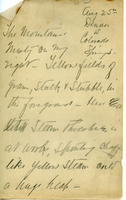 Aug 25th
Denver
to
Colorado
Springs
The Mountains
Mistily on my
right - Yellow fields of
grain, Stack & Stubble, in
the foreground - Here
Steam Thresher is
at work, spouting chaff
like yellow Steam onto
a huge heap -